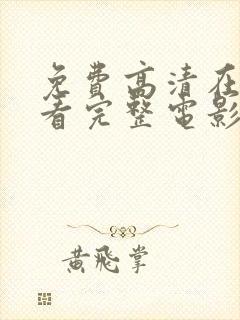 免費高清在
看完整電影
黃飛掌